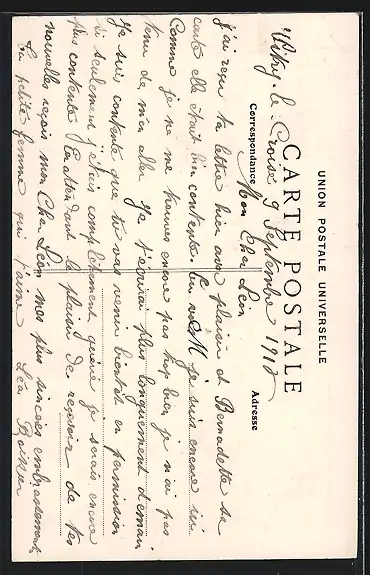 UNION POSTALE UNIVERSELLE
CARTE POSTALE
Correspondance
Adresse
Vitry-la-Croisée 9 Septembre 1917
Mon Cher Léon
J'ai reçu ta lettre hier avec plaisir et Bernadette sa
carte elle était bien contente. En ce je suis encore ici
Comme je ne me trouve encore pas trop bien je n'ai pas
tenu de m'en aller. Je t'écrirai plus longuement demain
Je suis contente que tu vas venir bientôt en permission
si seulement j'étais complètement guérie je serais encore
plus contente. En attendant le plaisir de recevoir de tes
nouvelles reçois mon Cher Léon mes plus sincères embrassements
Ta petite femme qui t'aime Léa